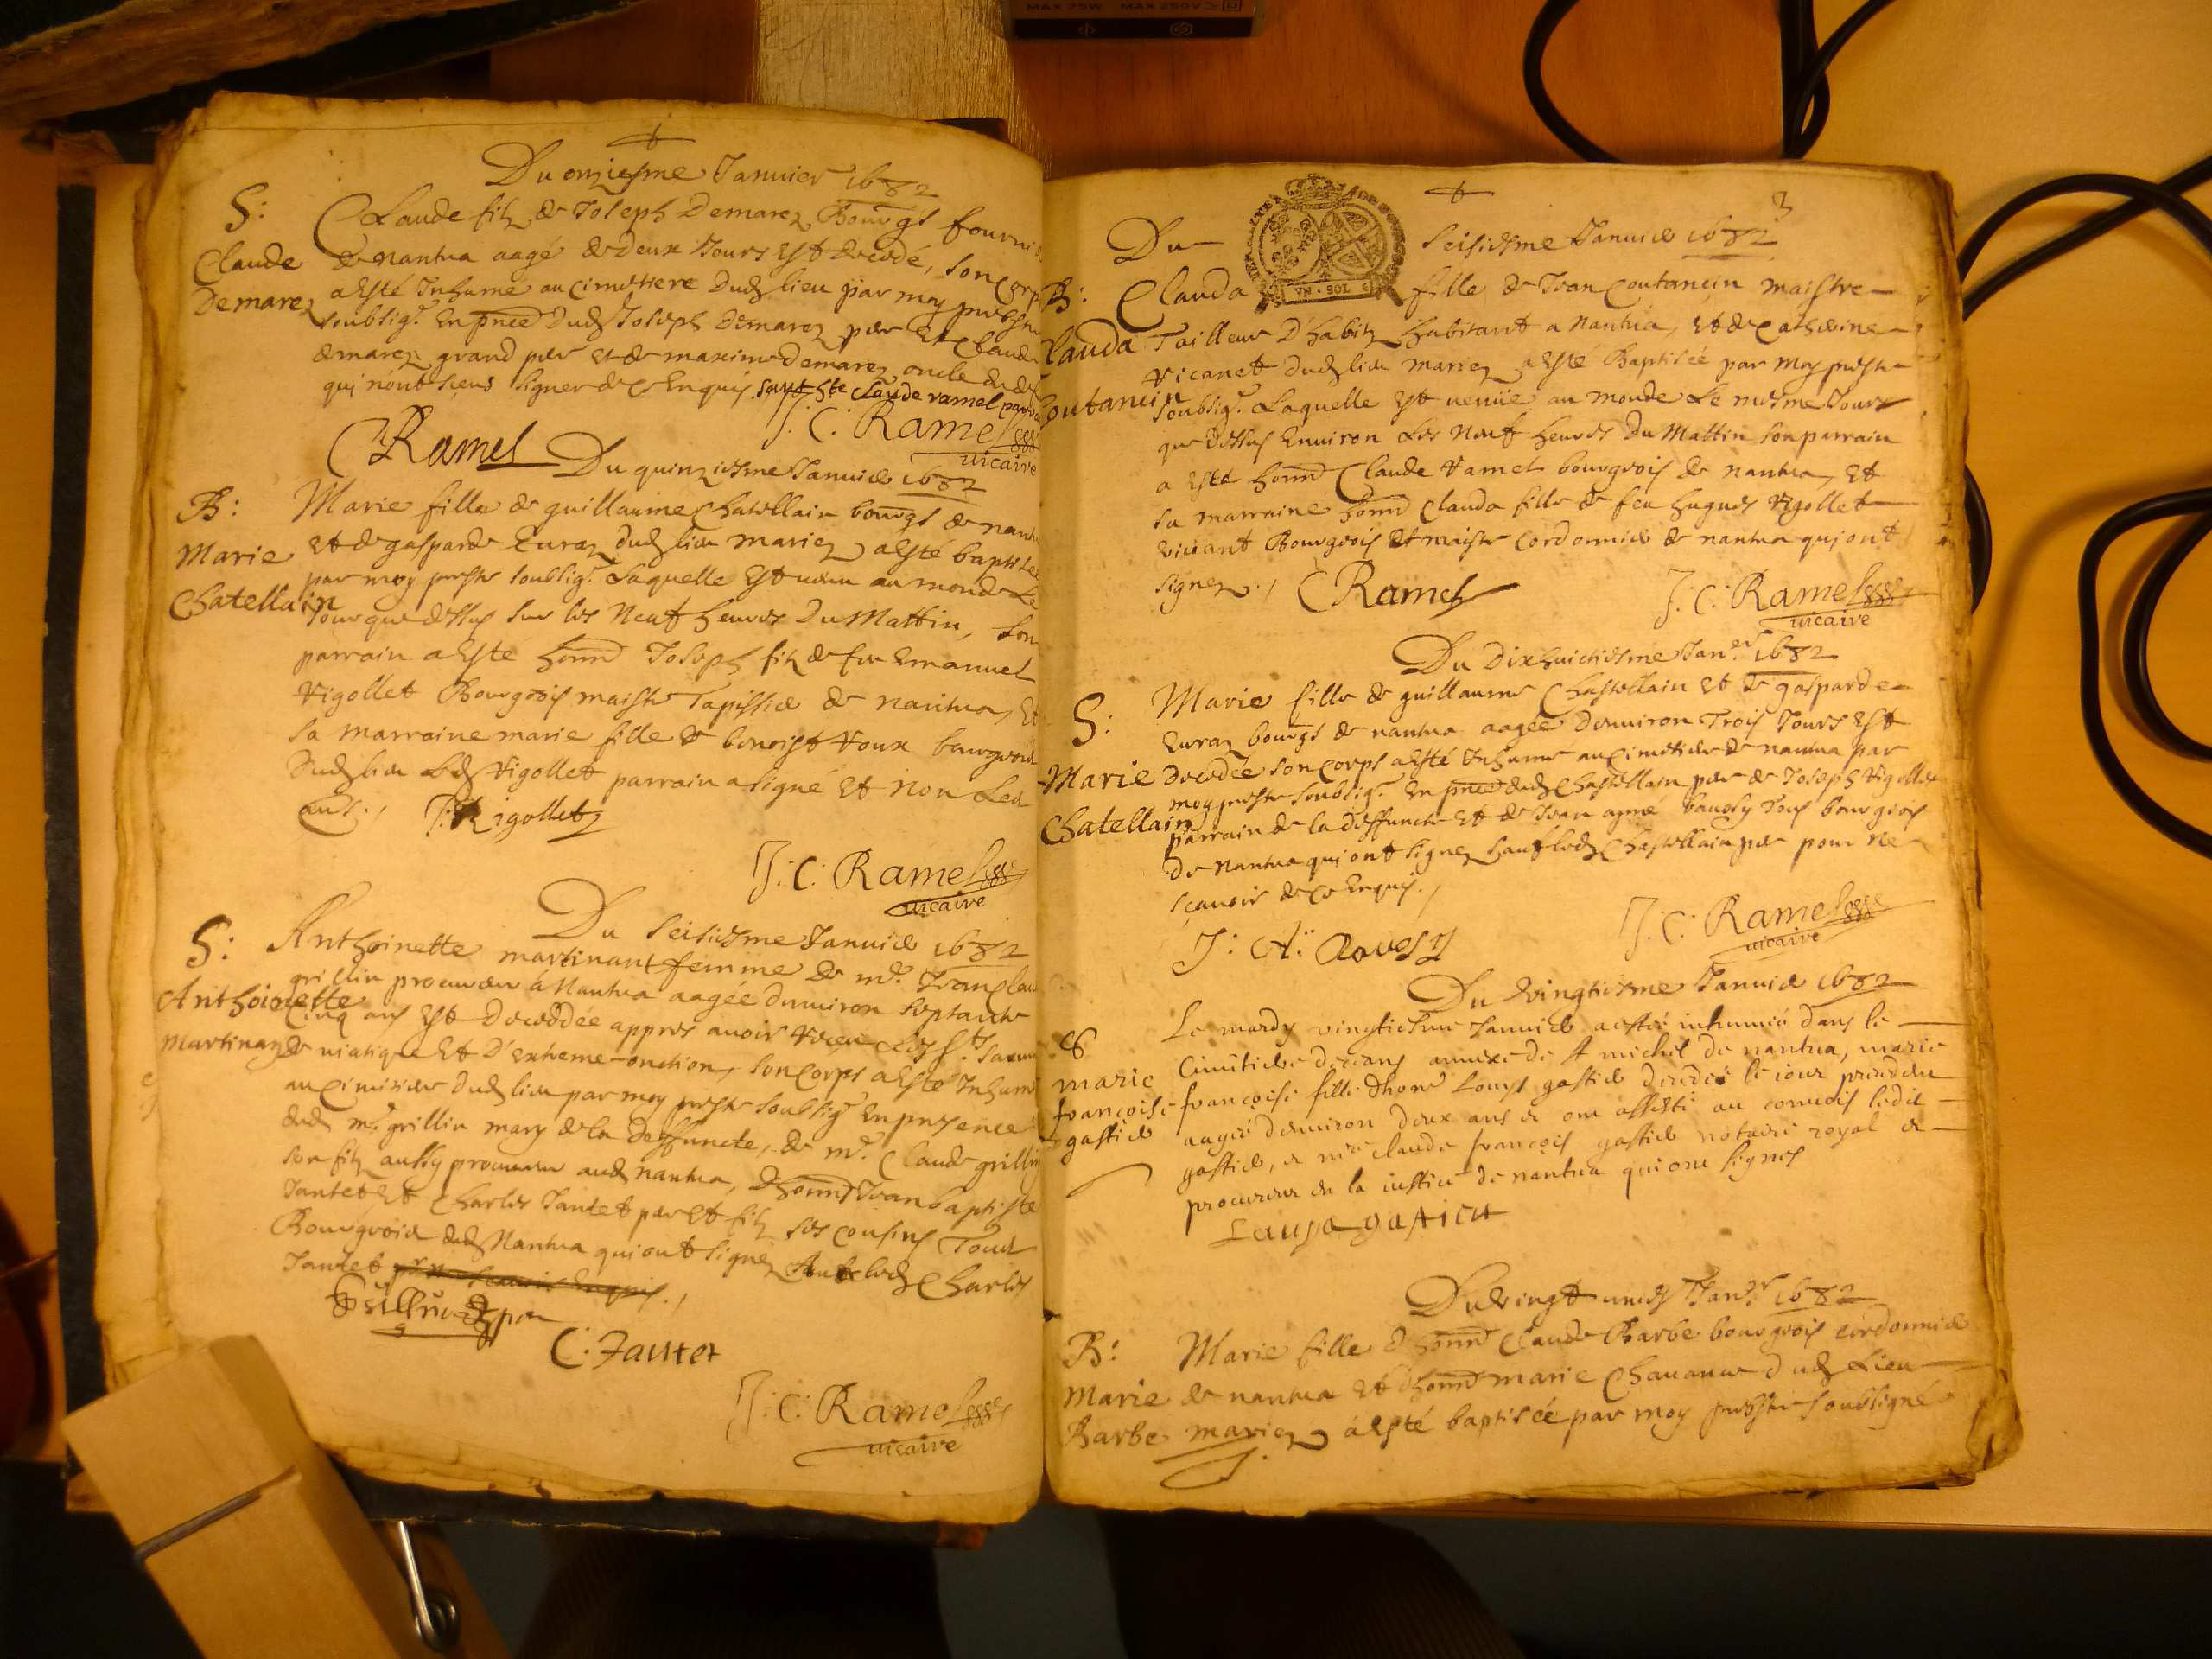 Du onziesme Januier 1682
S:
Claude
Demarez
Claude filz de Joseph Demarez Bourgs fournie
de nantua aagé de deux Jours Est decedé, son corp
a Esté Inhumé au cimettiere dudz lieu par moy prestre
soubsigé. En pnce dudz Joseph Demarez pere Et Claude
demarez grand pere et de maxime Demarez oncle
qui n'ont sceus signer de ce Enquis sauf hte Claude ramel
C Ramel
J: C: Ramel
uicaire
Du quinziesme Januier 1682
B:
Marie
Chatellain
Marie fille de guillaume Chatellain bourgs de nantu
Et de gasparde Euraz dudz lieu mariez a Esté baptisée
par moy prestre soubsigé. Laquelle Est venu au monde Le
Jour que dessus sur les Neuf heures Du Mattin, son
parrain a Esté honn Joseph filz de feu Emanuel
Rigollet Bourgeois maistre Tapissier de nantua, Et
sa marraine marie fille de benoist Roux bourgeois
Dudz lieu Ledz Rigollet parrain a signé Et non Lea
J: Rigollet
J: C: Ramel
uicaire
Du seisiesme Januier 1682
S:
Anthoinette
Martinand
Anthoinette martinant femme de me. Jean Clau
grillin procureur à Nantua aagée denuiron septante
Cinq ans Est decedée appres auoir receu Les sts. Sacrem
de viatique Et D'extreme-onction, son corps a Esté Inhumé
au Cimitiere dudz lieu par moy prestre soubsigé En presence
dudz me. grillin mary de la deffuncte, de me. Claude grillin
son filz aussy procureur audz nantua, d'honn Jean baptiste
Jantet Et Charles Jantet pere Et filz ses cousins Tous
Bourgeois dudz Nantua qui ont signez ledz Charles
Jantet
C: Jantet
J: C: Ramel
uicaire
3
Du seisiesme Januier 1682
VN · SOL
B:
Clauda
Coutancin
Clauda fille de Jean Coutancin maistre
Tailleur D'habitz habitant a Nantua, et de Catherine
Vicanet dudz lieu mariez a Esté Baptisée par moy prestre
soubsigé. Laquelle Est venüe au monde Le mesme Jour
que Dessus Enuiron Les Neuf heures Du Mattin son parrain
a Esté honn Claude Ramel bourgeois de nantua, Et
sa marraine honn Clauda fille de feu hugues Rigollet
viuant Bourgeois Et maistre Cordonnier de nantua qui ont
signez.
C Ramel
J: C: Ramel
uicaire
Du Dixhuictiesme Janer 1682
S:
Marie
Chatellain
Marie fille de guillaume Chastellain Et de gasparde
Euraz bourgs de nantua aagée denuiron Trois Jours Est
decedée son corps a Esté Inhumé au cimetiere de nantua par
moy prestre soubsigé. En pnce dudz Chastellain pere de Joseph Rigollet
parrain de la deffuncte Et de Jean aymé bauoly Tous bourgeois
de nantua qui ont signez sauf ledz Chastellain pere pour ne
scauoir de ce Enquis.
J: C: Ramel
uicaire
Du Vingtiesme Januier 1682
marie
françoise
gastier
Le mardy vingtiesme Januier a esté inhumé dans le
Cimitiere annexe de st michel de nantua, marie
françoise fille dhoné Louys gastier decedée le jour precedent
aagée denuiron deux ans et ont assisté au conuois ledit
gastier, et me claude françois gastier notaire royal et
procureur en la justice de nantua qui ont signés
Du Vingt unies Janer 1682
B:
Marie
Barbe
Marie fille d honn Claude Barbe bourgeois cordonnier
de nantua Et d'honn marie Chauanne dudz Lieu
mariez a Esté baptisée par moy prestre soubsigné